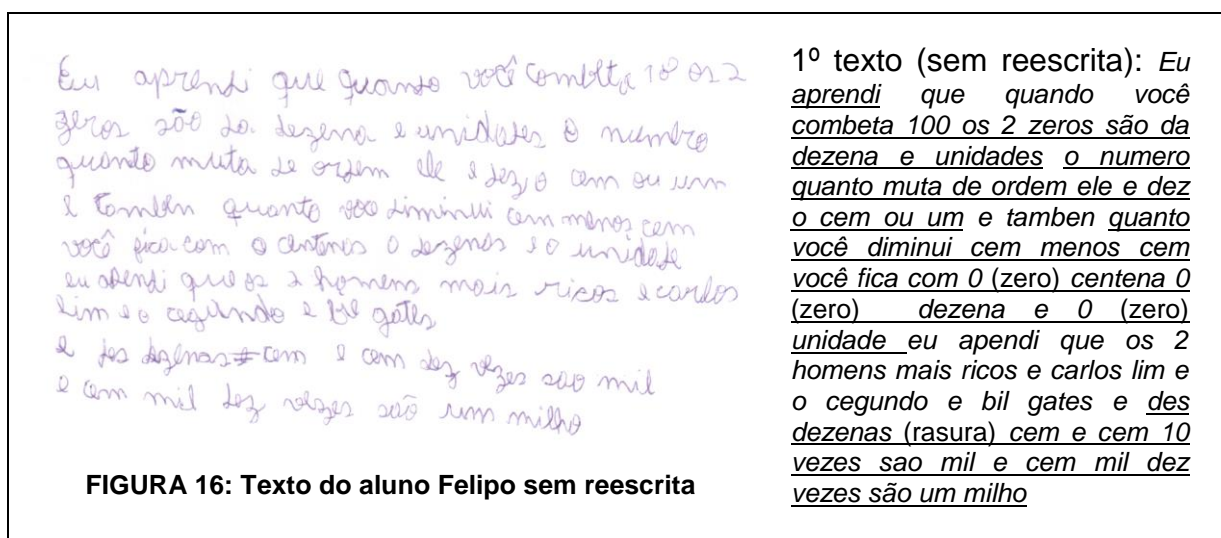 Eu aprendi que quando você combeta 100 os 2
zeros são da dezena e unidades o numero
quanto muta de ordem ele e dez o cem ou um
e tamben quanto voce diminui cem menos cem
você fica com 0 centenas 0 dezenas e 0 unidade
eu apendi que os 2 homens mais ricos e carlos
lim e o cegundo e bil gates
e des dezenas cem e cem dez vezes sao mil
e cem mil dez vezes são um milho
FIGURA 16: Texto do aluno Felipo sem reescrita
1º texto (sem reescrita): Eu
aprendi que quando você
combeta 100 os 2 zeros são da
dezena e unidades o numero
quanto muta de ordem ele e dez
o cem ou um e tamben quanto
você diminui cem menos cem
você fica com 0 (zero) centena 0
(zero) dezena e 0 (zero)
unidade eu apendi que os 2
homens mais ricos e carlos lim e
o cegundo e bil gates e des
dezenas (rasura) cem e cem 10
vezes sao mil e cem mil dez
vezes são um milho